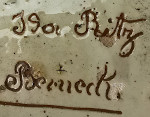 Ida Ritz
Berneck.